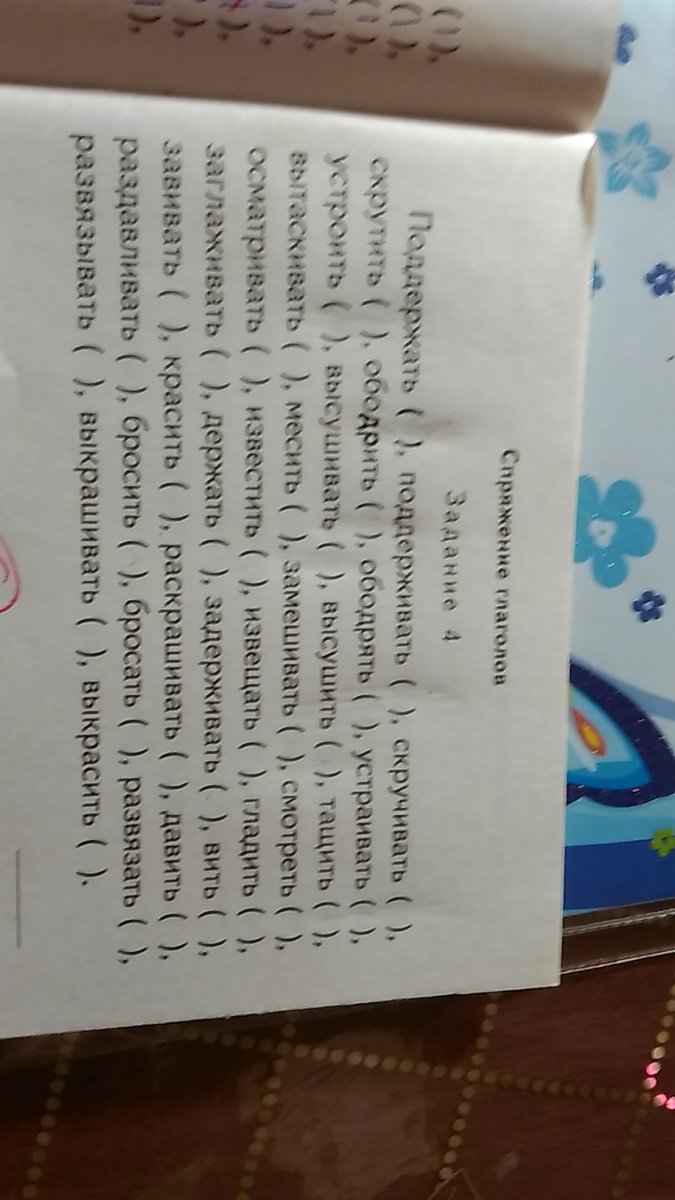 (1),
(1),
(1),
(1),
Спряжение глаголов
Задание 4
Поддержать ( ), поддерживать ( ), скручивать ( ),
скрутить ( ), ободрить ( ), ободрять ( ), устраивать ( ),
устроить ( ), высушивать ( ), высушить ( ), тащить ( ),
вытаскивать ( ), месить ( ), замешивать ( ), смотреть ( ),
осматривать ( ), известить ( ), извещать ( ), гладить ( ),
заглаживать ( ), держать ( ), задерживать ( ), вить ( ),
завивать ( ), красить ( ), раскрашивать ( ), давить ( ),
раздавливать ( ), бросить ( ), бросать ( ), развязать ( ),
развязывать ( ), выкрашивать ( ), выкрасить ( ).